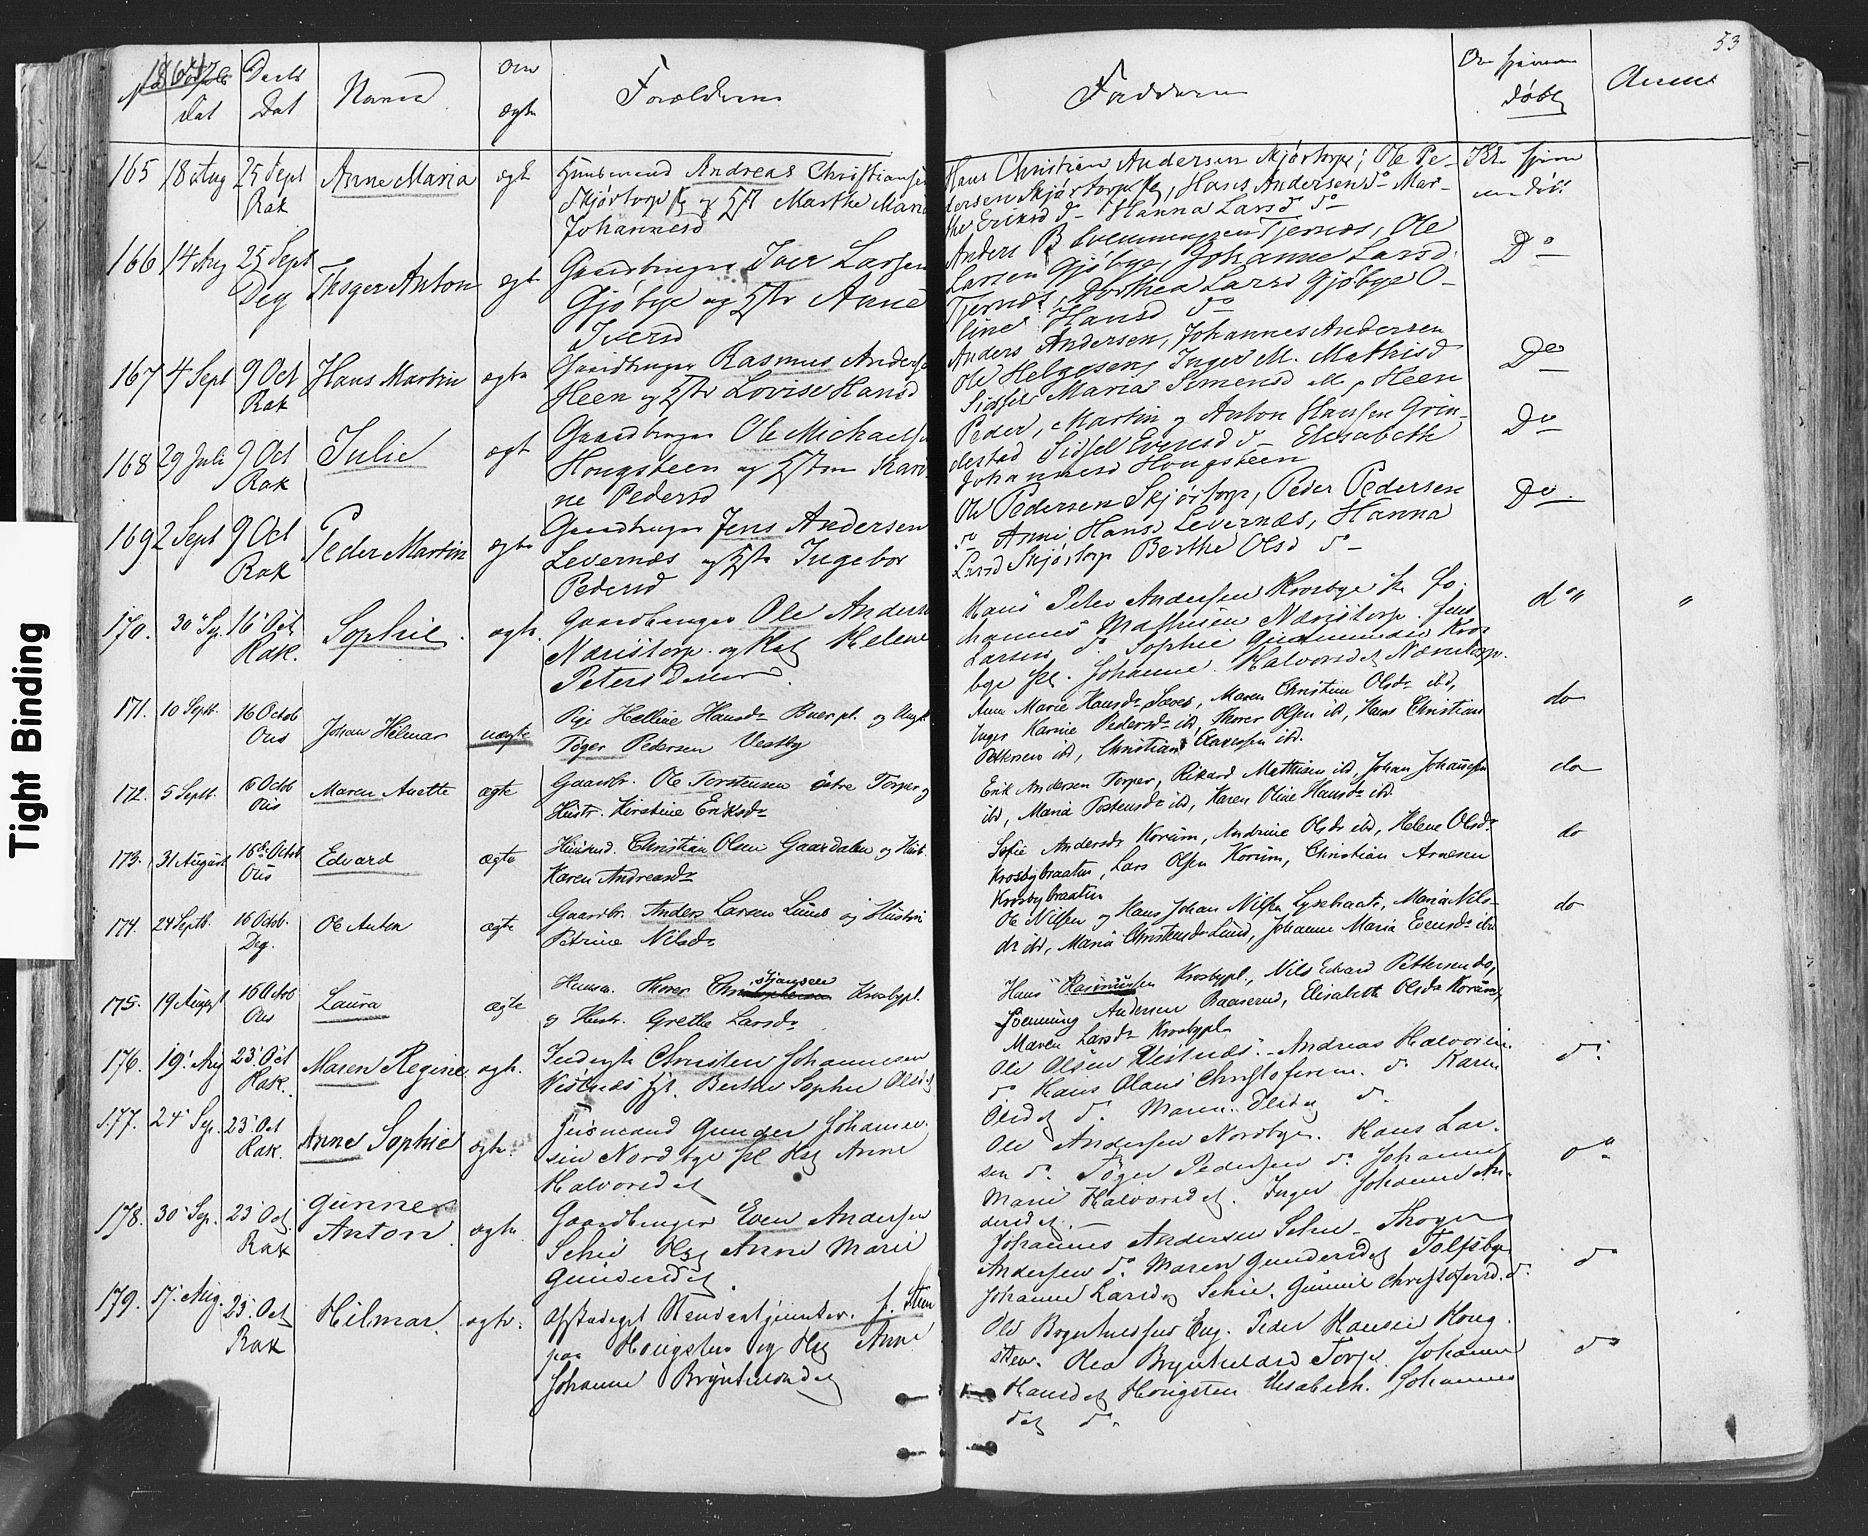 53
1864
No Fødsels Daabs Navn Om Forældrene Faddere Om hjemme Anm
Dat Dat ægte døbt
165 18 Aug 25 Sept Anne Maria ægte Huusmand Andreas Christiansen
Rak Skjørtorp og Marthe Maria
Johannesd
Hans Christian Andersen Skjørtorp, Ole Pe-
dersen Skjørtorp, Hans Andersen do Mar-
the Eriksd do Hanna Larsd do
Ikke hjem
medøbt
166 14 Aug 25 Sept Thoger Anton ægte Gaardbruger Iver Larsen
Deg Gjøbye og Hstr Anne
Iversd
Anders B Svenningsen Tjernæs, Ole
Larsen Gjøbye, Johanne Larsd
Tjernæs, Dorthea Larsd Gjøbye O-
line Hansd do
Do
167 4 Sept 9 Oct Hans Martin ægte Gaardbruger Rasmus Anders
Rak Heen og Hstr Lovise Hansd
Anders Andersen, Johannes Andersen
Ole Helgesen, Inger M. Mathisd
Sidsel Maria Simensd Heen
Do
168 29 Juli 9 Oct Julie ægte Gaardbruger Ole Michaels
Rak Hougsteen og Hstru Kari-
ne Pedersd
Peder, Martin og Anton Hansen Grin-
destad Sidsel Evensd do Elisabeth
Johannesd Hougsteen
Do
169 2 Sept 9 Oct Peder Martin ægte Gaardbruger Jens Andersen
Rak Levernæs og Hstr Ingebor
Pedersd
Ole Pedersen Skjørtorp, Peder Pedersen
do Anne Hansd Levernæs, Hanna
Larsd Skjørtorp Berthe Olsd do
Do
170. 30 Sep. 16 Oct Sophie. ægte. Gaardbruger Ole Anders
Rak. Næristorp og Helene
Peters
Hans Peter Andersen Krosbye Jo-
hannes Mathisen Næristorp. Jens
Larsen do Sophie Gudmunds Kros-
bye pl. Johanne Halvorsd Næristorp.
do "
171. 10 Septb. 16 Octob Johan Hilmar uægte Pige Helline Hansd Buer pl. og Ungk.
Ous Tøger Pedersen Vestby
Anne Marie Hansd Sæves, Maren Christine Olsd ibd,
Inger Karine Pedersd ibd, Thorer Olsen ibd, Hans Christian
Pettersen ibd, Christian Aagesen ibd.
do
172. 5 Septb. 16 Octob Maren Anette ægte Gaardbr. Ole Torstensen østre Torper og
Ous Hustr. Kirstine Eriksd
Erik Andersen Torper, Rikard Mathisen ibd, Johan Johansen
ibd, Maria Tostensd ibd, Karen Oline Hansd ibd.
do
173. 31 August 16de Octob Edvard ægte Huusmd. Christian Olsen Gaardalen og Hust.
Ous Karen Andreasd
Sofie Andersd Korum, Andrine Olsd ibd, Helene Olsd
Krosbybraaten, Lars Olsen Korum, Christian Arnesen
Krosbybraaten
do
174. 24 Septb. 16 Octob. Ole Anton ægte Gaardbr. Anders Larsen Lund og Hustru
Deg. Petrine Nilsd
Ole Nilsen og Hans Johan Nilsen Lysebraate, Maria Nils-
dr ibd, Maria Christensd Lund, Johanne Maria Evensd ibd
do
175. 19 August 16 Octob Laura ægte Huusm. Thorer Christiansen Krosbypl.
Ous og Hustr. Grethe Larsd
Hans Rasmussen Krosbypl., Nils Edvard Pettersen do,
Svenning Andersen Baaserud, Elisabeth Olsd Korum,
Maren Larsd Krosbypl
176. 19 Aug 23 Oct Maren Regine ægte. Inderst Christen Johannesen
Rak. Vestnæs Berthe Sophie Olsd
Ole Olsen Vestnæs. Andreas Halvorsen
do Hans Olaus Christofersen do Karen
Olsd do Maren do
do
177. 24 Sep. 23 Oct Anne Sophie ægte. Husmand Gunder Johannes-
Rak. sen Nordbye pl Anne
Halvorsdat
Ole Andersen Nordbye. Hans Lar-
sen do Tøger Pedersen do Johanne
Marie Halvorsdat. Inger Johanne An-
dersdat.
do
178. 30 Sep. 23 Oct Gunner Anton. ægte Gaardbruger Even Andersen
Rak Schie Anne Marie
Gundersdat.
Johannes Andersen Schie. Thoger
Andersen do Maren Gundersdat Tolfsbye
Johanne Larsd Schie, Gunnil Christofersd. do
do
179. 17 Aug. 23 Oct Hilmar. ægte. J. Steen
Rak paa Hougsten og Anne
Johanne Bryntildsdat
Ole Bryntildsen Eng. Peder Hansen Houg-
steen. Olea Bryntildsd Torp. Johanne
Hansdat Hougsten Elisabeth Johannes
dat do
do
Tight Binding